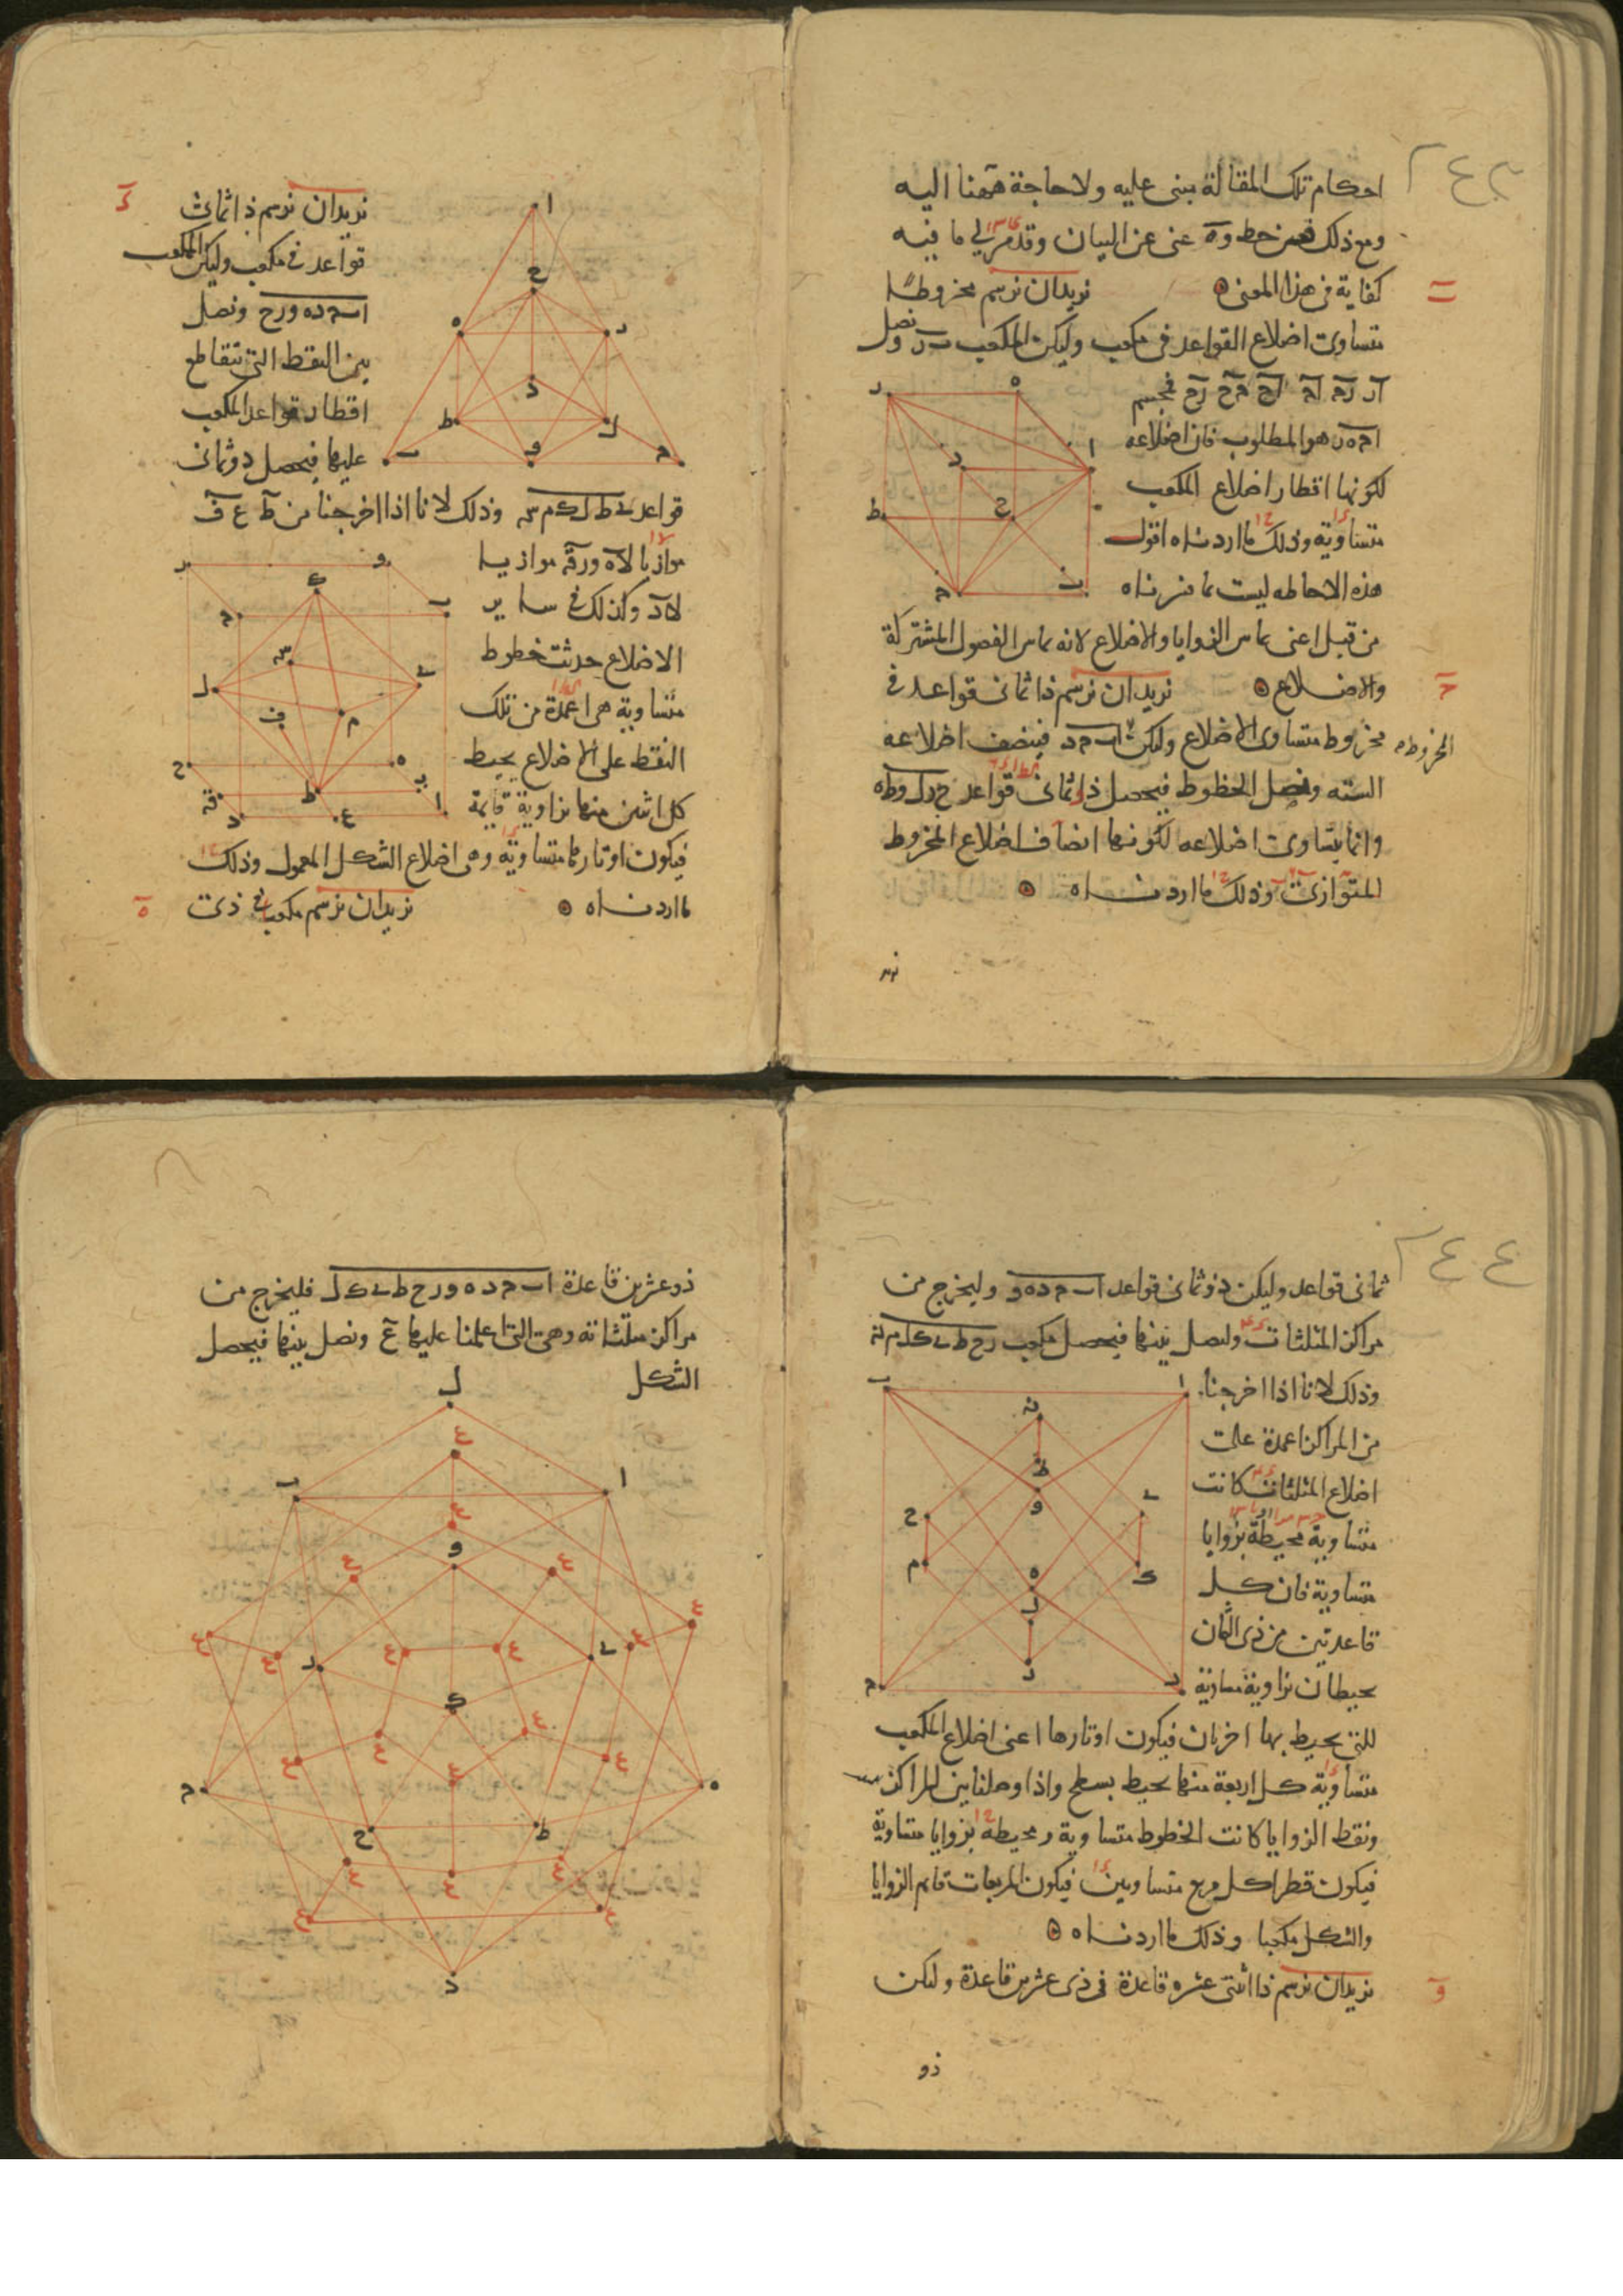 احكام تلك المقالة مبنى عليه ولا حاجة ههنا اليه
ومع ذلك غنى عن البيان وقد مر لى ما فيه
كفاية فى هذا المعنى نريد ان نرسم مخروطا
متساوى اضلاع القواعد فى مكعب وليكن المكعب ونصل
فمجسم
هو المطلوب فان اضلاعه
لكونها اقطار اضلاع المكعب
متساوية وذلك ما اردناه اقول
هذه الاحاطه ليست بما فسرناه
من قبل اعنى بماس الزوايا والاضلاع لانه بماس الفصول المشتركة
والاضلاع نريد ان نرسم ذا ثمانى قواعد فى
مخروط متساوى الاضلاع وليكن ا ب ح د فينصف اضلاعه
المخروطه
السته ونصل الخطوط فيحصل ذا ثمانى قواعد
وانما يتساوى اضلاعه لكونها انصاف اضلاع المخروط
المتوازى وذلك ما اردناه
نريد ان نرسم ذا ثمان
قواعد فى مكعب وليكن المكعب
ا ب ح د ه و ر ح ونصل
بين النقط التى تتقاطع
اقطار قواعد المكعب
عليها فيحصل ذو ثمانى
قواعد ى ط ل ك م س وذلك لانا اذا اخرجنا من ط ع ف
موازيا لاه ورقه موازيا
لاد وكذلك فى ساير
الاضلاع حدثت خطوط
متساوية هى اعمدة من تلك
النقط على الاضلاع يحيط
كل اثنين منها بزاوية قايمة
فيكون اوتارها متساوية وهى اضلاع الشكل المعمول وذلك
ما اردناه نريد ان نرسم مكعبا فى ذى
ثمانى قواعد وليكن ذو ثمانى قواعد ا ب ح د ه و وليخرج من
مراكز المثلثات وليصل بينها فيحصل مكعب ر ح ط ى ك ل م ن
وذلك لانا اذا اخرجنا
من المراكز اعمدة على
اضلاع المثلثات كانت
متساوية محيطة بزوايا
متساوية فان كل
قاعدتين من ذى الثمان
يحيطان بزاوية مساوية
للتى يحيط بها اخريان فيكون اوتارها اعنى اضلاع المكعب
متساوية كل اربعة منها يحيط بسطح واذا وصلنا بين المراكز
ونقط الزوايا كانت الخطوط متساوية ومحيطة بزوايا متساوية
فيكون قطرا كل مربع متساويين فيكون المربعات قايم الزوايا
والشكل مكعبا وذلك ما اردناه
نريد ان نرسم ذا اثنتى عشره قاعدة فى ذى عشرين قاعدة وليكن
ذو
ذو عشرين قاعدة ا ب ح د ه و ر ح ط ى ك ل فليخرج من
مراكز مثلثاته وهى التى اعلمنا عليها ع ونصل بينها فيحصل
الشكل